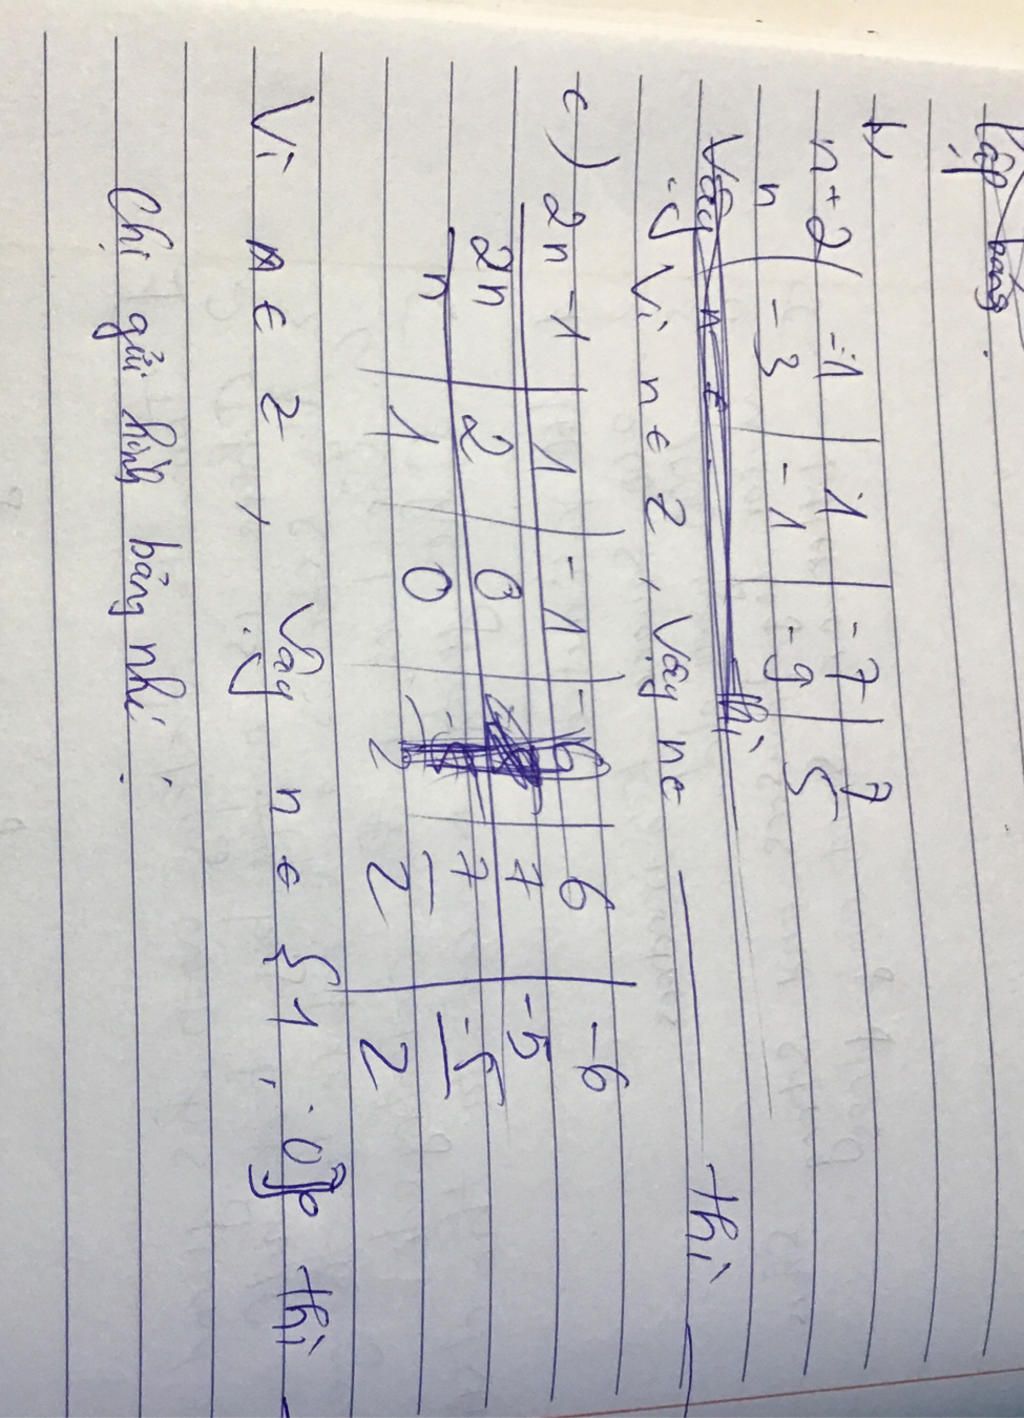 Lập bảng.
b)
n+2 | -1 | 1 | -7 | 7
n | -3 | -1 | -9 | 5
Vậy n ∈ thì
Vì n ∈ Z, Vậy n ∈ — thì
c) 2n-1 | 1 | -1 | 6 | -6
2n | 2 | 0 | 7 | -5
n | 1 | 0 | 7/2 | -5/2
Vì n ∈ Z, Vậy n ∈ {1, 0} thì
Chị gửi hình bảng nhé.